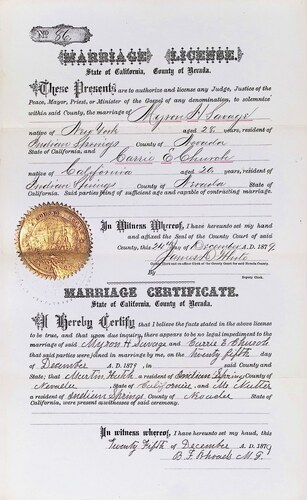 No. 86
MARRIAGE LICENSE.
State of California, County of Nevada.
These Presents are to authorize and license any Judge, Justice of the
Peace, Mayor, Priest, or Minister of the Gospel of any denomination, to solemnize
within said County, the marriage of Myron H. Savage
native of New York aged 28 years, resident of
Indian Springs County of Nevada
State of California, and Carrie E Church
native of California aged 26 years, resident of
Indian Springs County of Nevada
State of California. Said parties being of sufficient age and capable of contracting marriage.
In Witness Whereof, I have hereunto set my hand
and affixed the Seal of the County Court of said
County, this 24th day of December A.D. 1879
James D. White
County Clerk and ex-officio Clerk of the County Court for said Nevada County.
By
Deputy Clerk.
MARRIAGE CERTIFICATE.
State of California, County of Nevada.
I Hereby Certify that I believe the facts stated in the above license
to be true, and that upon due inquiry, there appears to be no legal impediment to the
marriage of said Myron H. Savage and Carrie E. Church
that said parties were joined in marriage by me, on the Twenty fifth day
of December A.D. 1879, in said County and
State; that Martin Hatch a resident of Indian Spring County of
Nevada State of California, and Mr
a resident of Indian Springs County of Nevada State of
California, were present as witnesses of said ceremony.
In witness whereof, I have hereunto set my hand, this
Twenty Fifth of December A.D. 1879
B. F. Rhoads M. G.